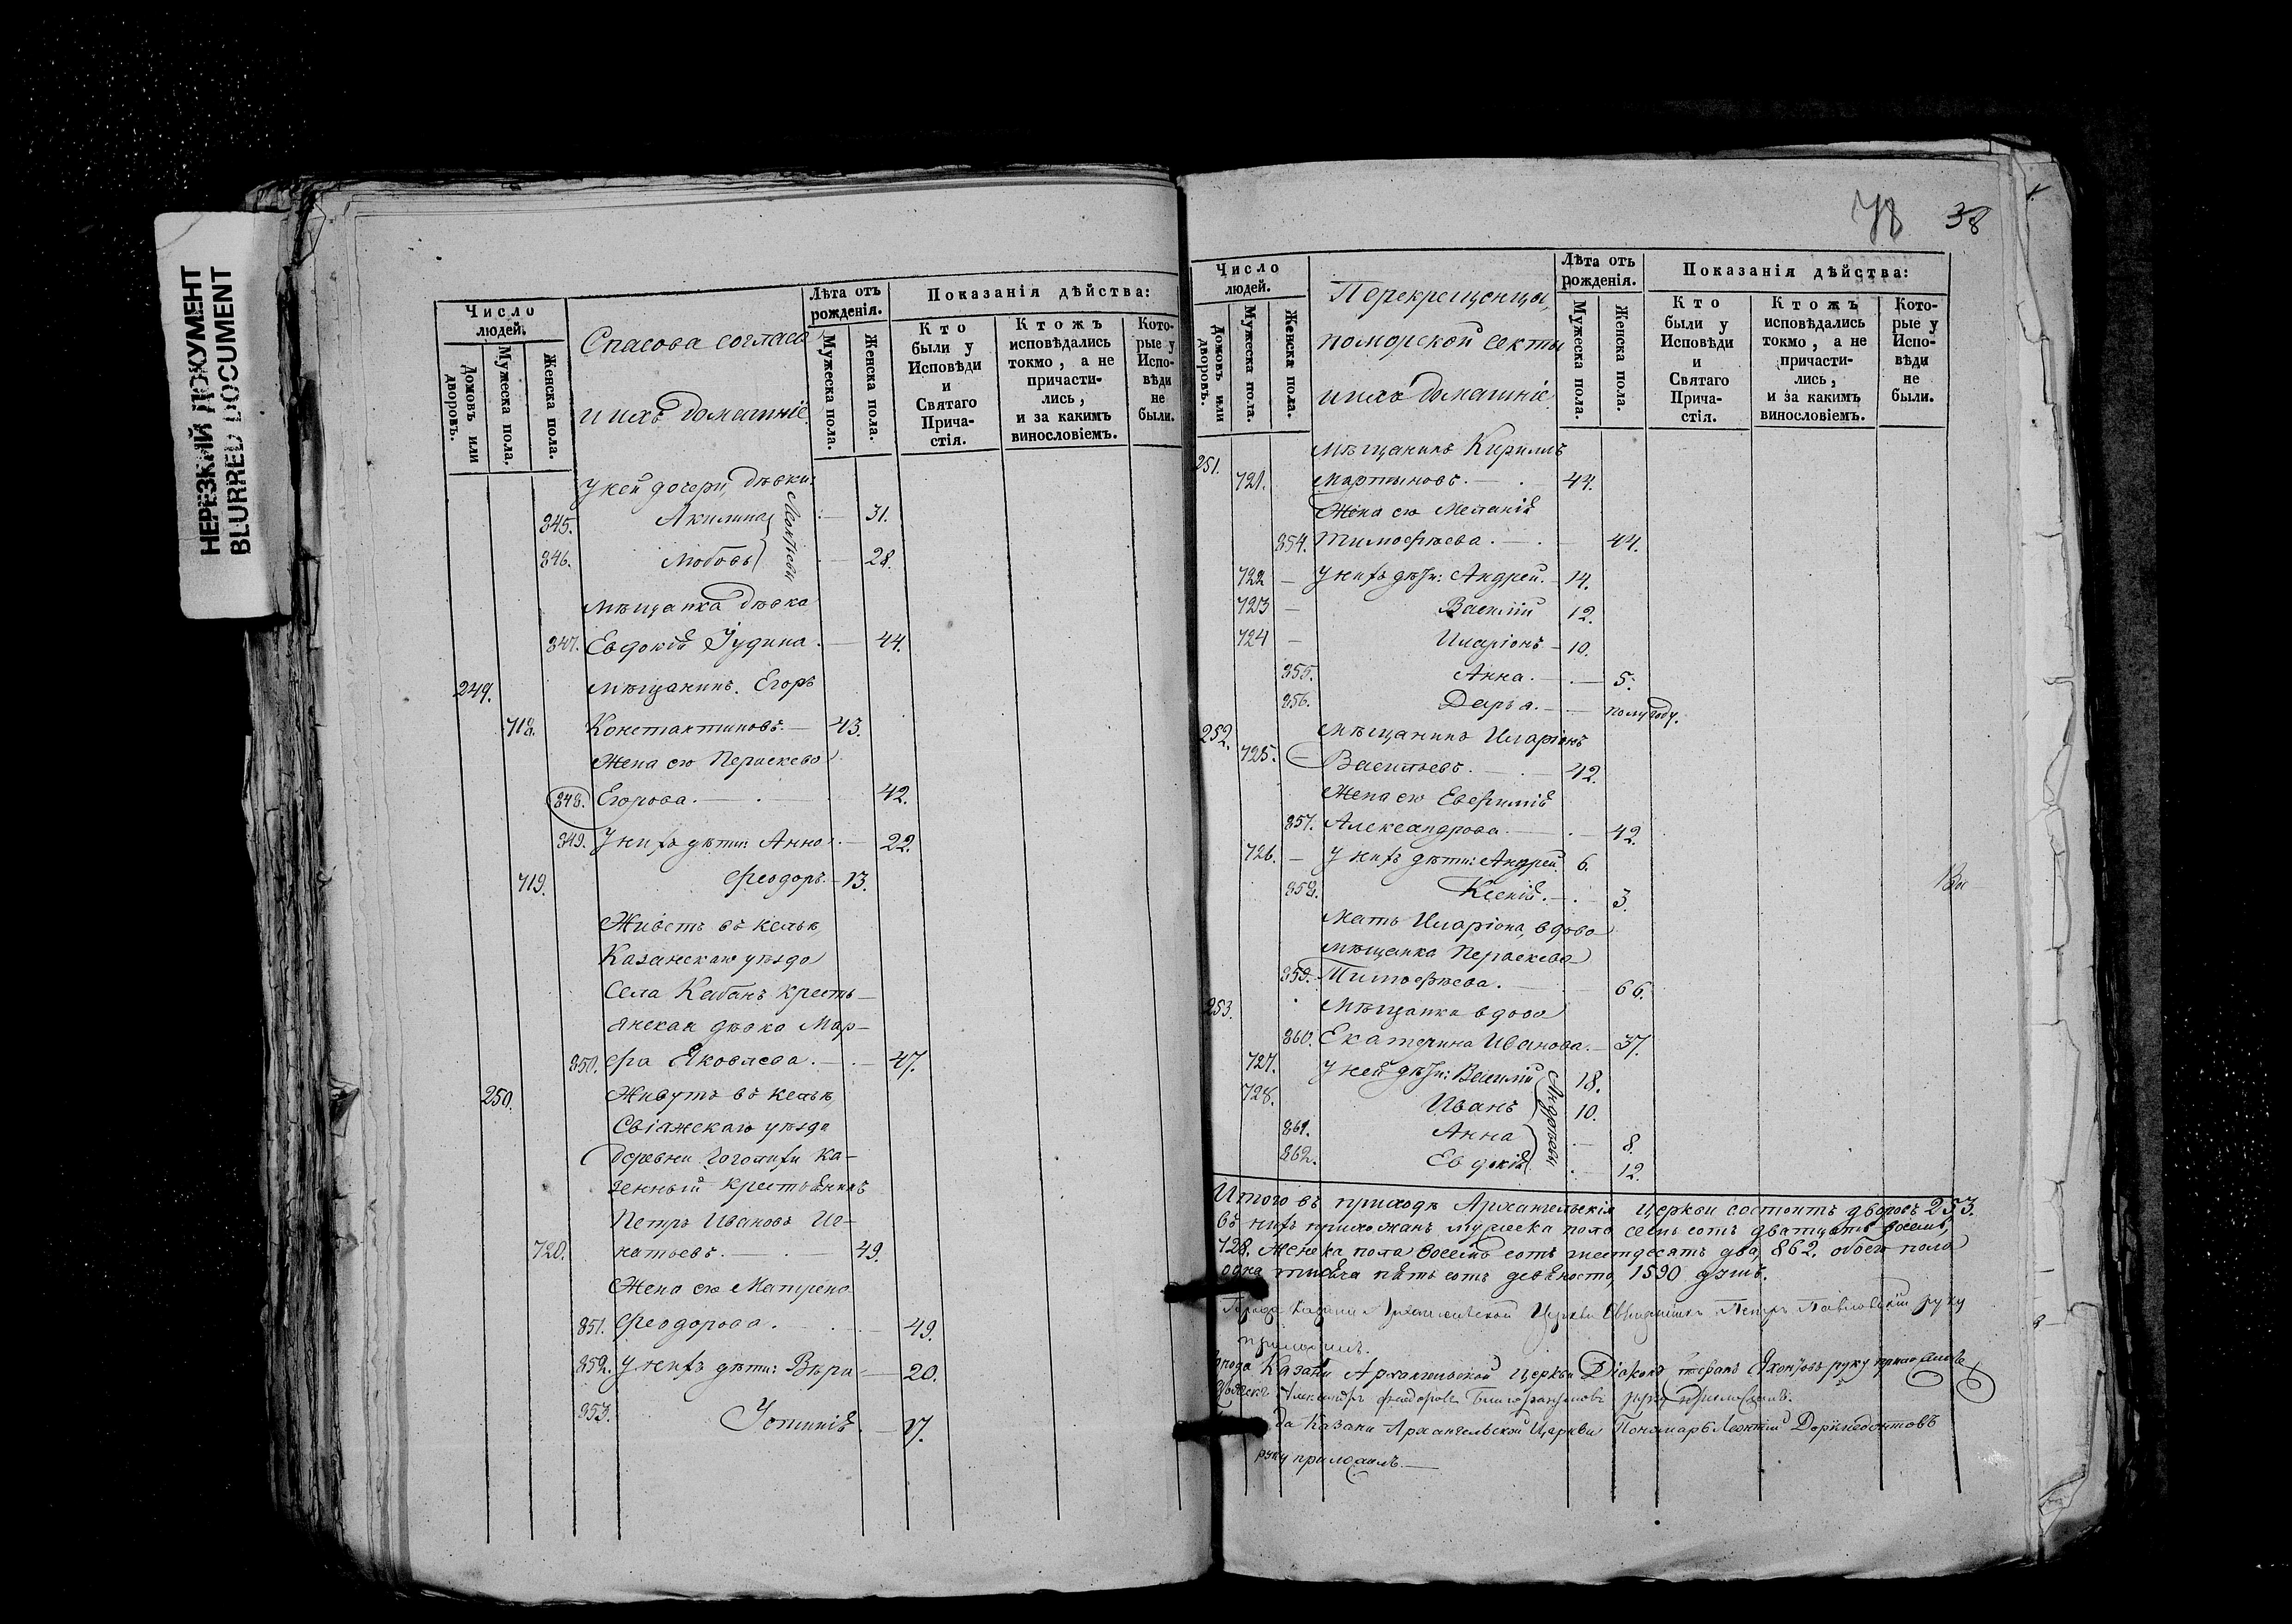 НЕРЕЗКИЙ ДОКУМЕНТ
BLURRED DOCUMENT
Число людей.
Домовъ или дворовъ.
Мужеска пола.
Женска пола.
Спасова согласа
и ихъ домашніе.
Лѣта отъ рожденія.
Мужеска пола.
Женска пола.
Показанія дѣйства:
Кто были у Исповѣди и Святаго Причастія.
Ктожъ исповѣдались токмо, а не причастились, и за какимъ винословіемъ.
Которые у Исповѣди не были.
У ней дочери, дѣвки:
845. Акилина 31.
846. Любовь 28.
Мѣщанка дѣвка
847. Евдокія Іудина. 44.
249. Мѣщанинъ Егоръ
718. Константиновъ. 43.
Жена его Параскева
848. Егорова. 42.
849. У нихъ дѣти: Анна. 22.
719. Феодоръ. 13.
Живетъ въ кельѣ,
Казанскаго уѣзда
Села Кабанъ кресть-
янская дѣвка Мар-
850. фа Яковлева. 47.
250. Живутъ въ кельѣ,
Свіяжскаго уѣзда
деревни ка-
зенный крестьянинъ
Петръ Ивановъ Иг-
720. натьевъ. 49.
Жена его Матрена
851. Феодорова. 49.
852. У нихъ дѣти: Вѣра 20.
853. Устинія. 17.
78 38
Число людей.
Домовъ или дворовъ.
Мужеска пола.
Женска пола.
Перекрещенцы,
поморской секты
и ихъ домашніе.
Лѣта отъ рожденія.
Мужеска пола.
Женска пола.
Показанія дѣйства:
Кто были у Исповѣди и Святаго Причастія.
Ктожъ исповѣдались токмо, а не причастились, и за какимъ винословіемъ.
Которые у Исповѣди не были.
251. Мѣщанинъ Кирилъ
721. Мартыновъ. 44.
Жена его Меланія
854. Тимофѣева. 44.
722 У нихъ дѣти: Андрей. 14.
723 Василій 12.
724 Иларіонъ 10.
855. Анна. 5.
856. Дарья. полугоду.
252. Мѣщанинъ Иларіонъ
725. Васильевъ. 42.
Жена его Евфимія
857. Александрова. 42.
726. У нихъ дѣти: Андрей. 6.
858. Ксенія. 3.
Мать Иларіона, вдова
мѣщанка Параскева
859. Тимофѣева. 66.
253. Мѣщанка вдова
860. Екатерина Иванова. 37.
727. У ней дѣти: Василій 18.
728. Иванъ 10.
Андреевы
861. Анна 8.
862. Евдокія 12.
Итого въ приходѣ Архангельскія церкви состоитъ дворовъ 253.
въ нихъ прихожанъ мужеска пола семь сотъ дватцать восемь,
728. женска пола восемь сотъ шестдесятъ два, 862. обоего пола
одна тысяча пять сотъ девяносто, 1590 душъ.
Города Казани Архангельской Церкви Священникъ Петръ Павловскій руку
приложилъ.
города Казани Архангельской церкви Діаконъ Стефанъ руку приложилъ
Александръ Феодоровъ руку приложилъ.
да Казани Архангельской Церкви Пономарь Леонтій Доримедонтовъ
руку приложилъ.